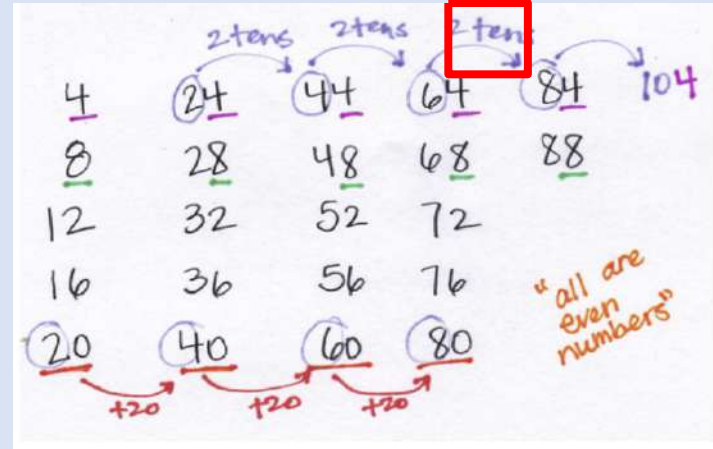 2 tens 2 tens 2 tens
4 24 44 64 84 104
8 28 48 68 88
12 32 52 72
16 36 56 76
20 40 60 80
+20 +20 +20
"all are
even
numbers"